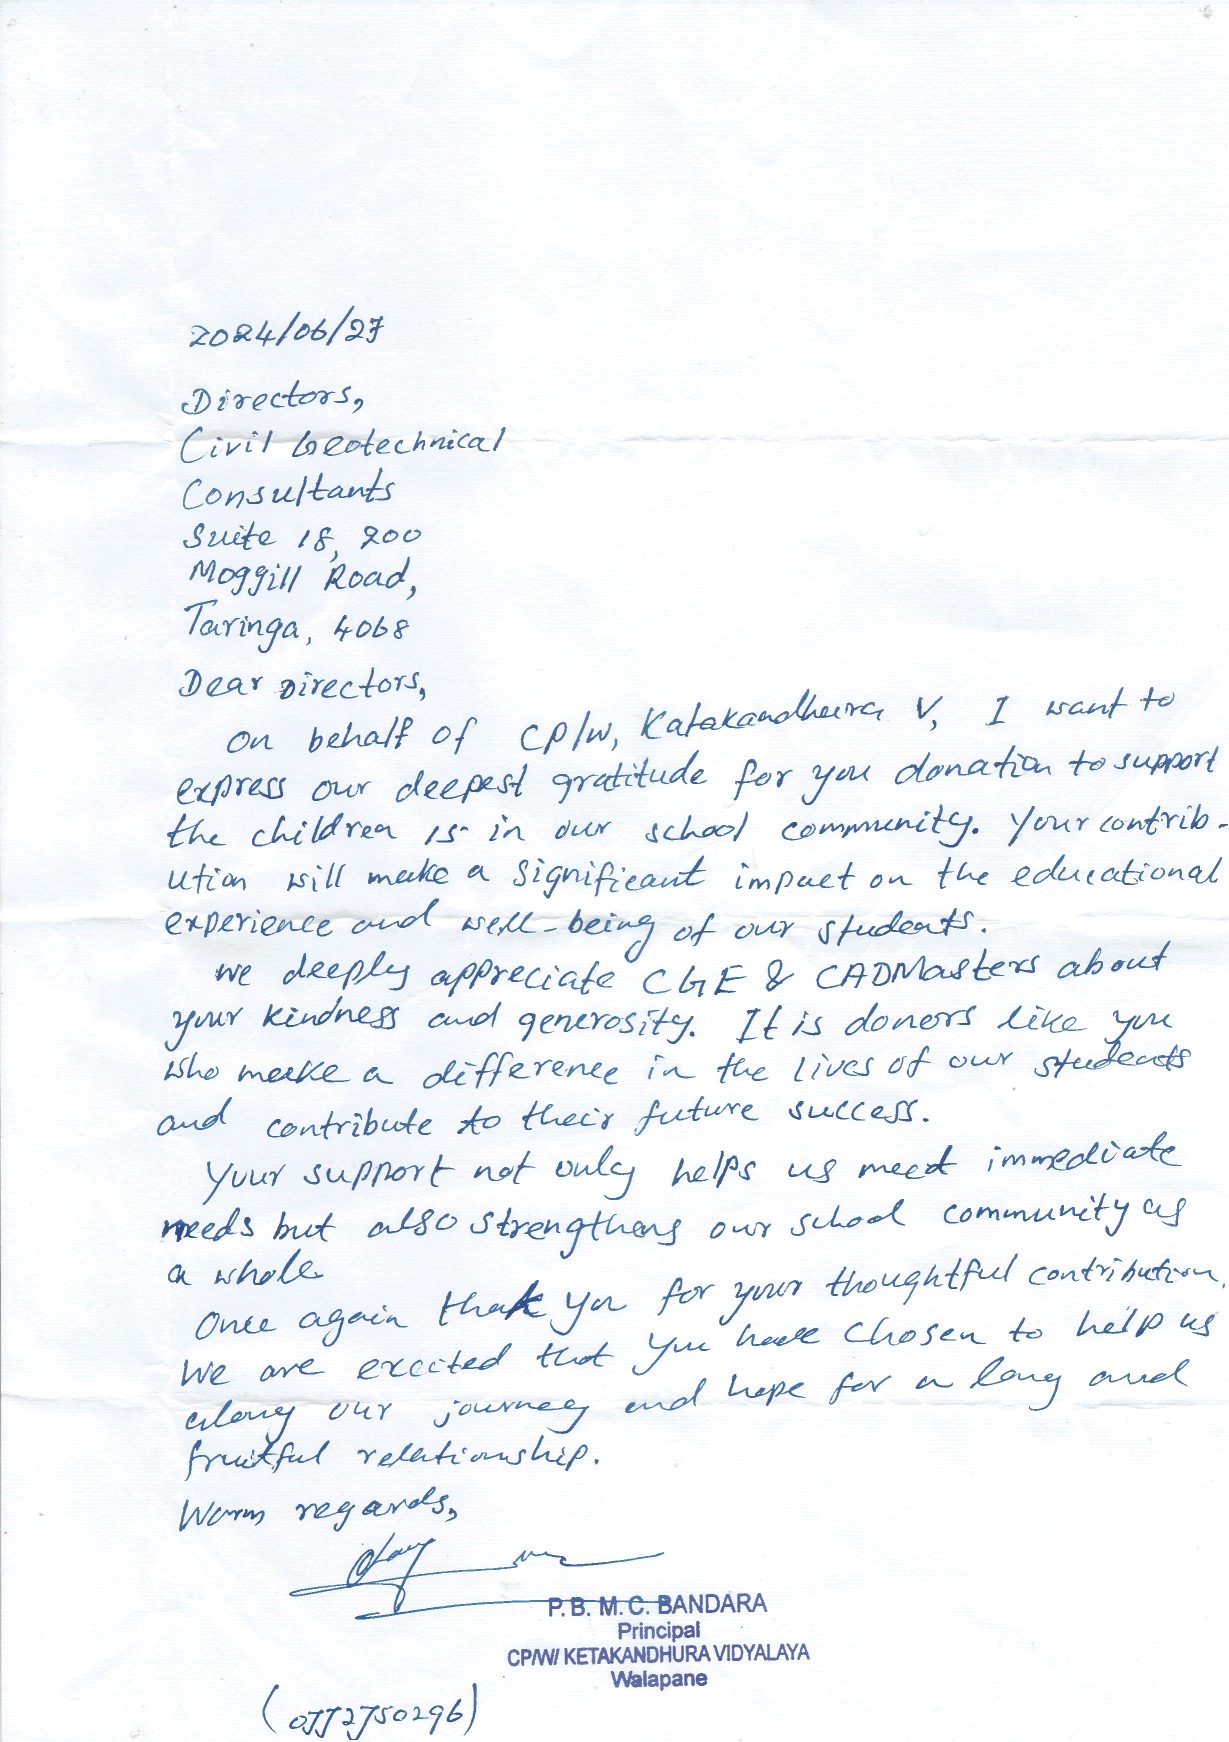 2024/06/27
Directors,
Civil Geotechnical
Consultants
Suite 18, 200
Moggill Road,
Taringa, 4068
Dear Directors,
On behalf of CP/W, Katakandhura V, I want to
express our deepest gratitude for you donation to support
the children is in our school community. Your contrib-
ution will make a significant impact on the educational
experience and well-being of our students.
We deeply appreciate CGE & CADMasters about
your kindness and generosity. It is donors like you
who make a difference in the lives of our students
and contribute to their future success.
Your support not only helps us meet immediate
needs but also strengthens our school community as
a whole
Once again thak you for your thoughtful contribution.
We are excited that you have chosen to help us
along our journey and hope for a long and
fruitful relationship.
Warm regards,
P. B. M. C. BANDARA
Principal
CP/W/ KETAKANDHURA VIDYALAYA
Walapane
(0772750296)